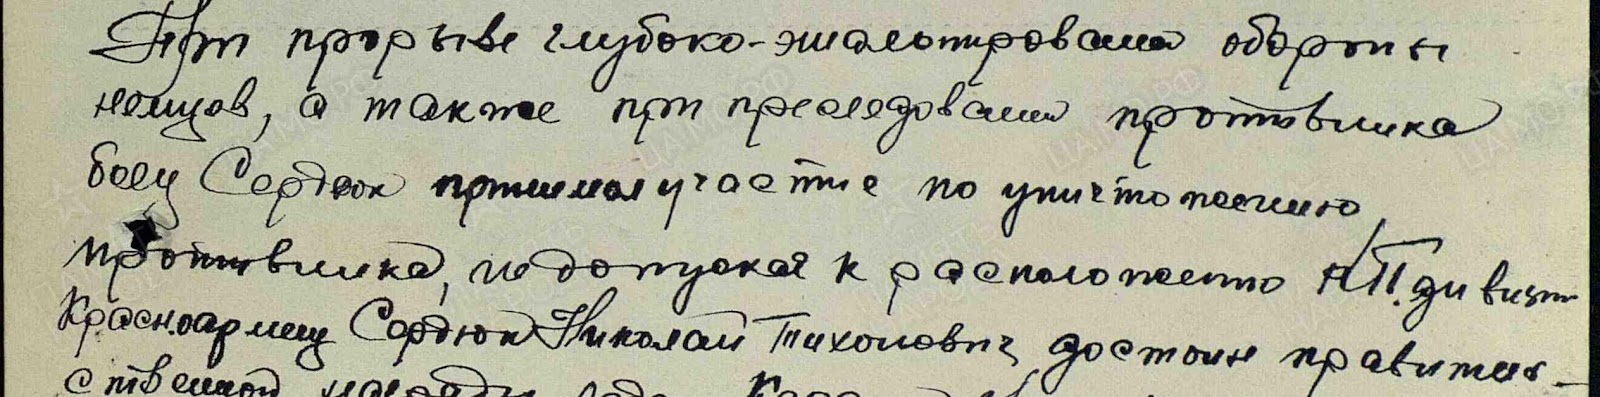 При прорыве глубоко-эшалонированой обороны
немцов, а также при преследовании противника
боец Сердюк принимал участие по уничтожению
противника, недопуская к расположению НП. дивизии
Красноармеец Сердюк Николай Тихонович достоин правитель-
ственной награды